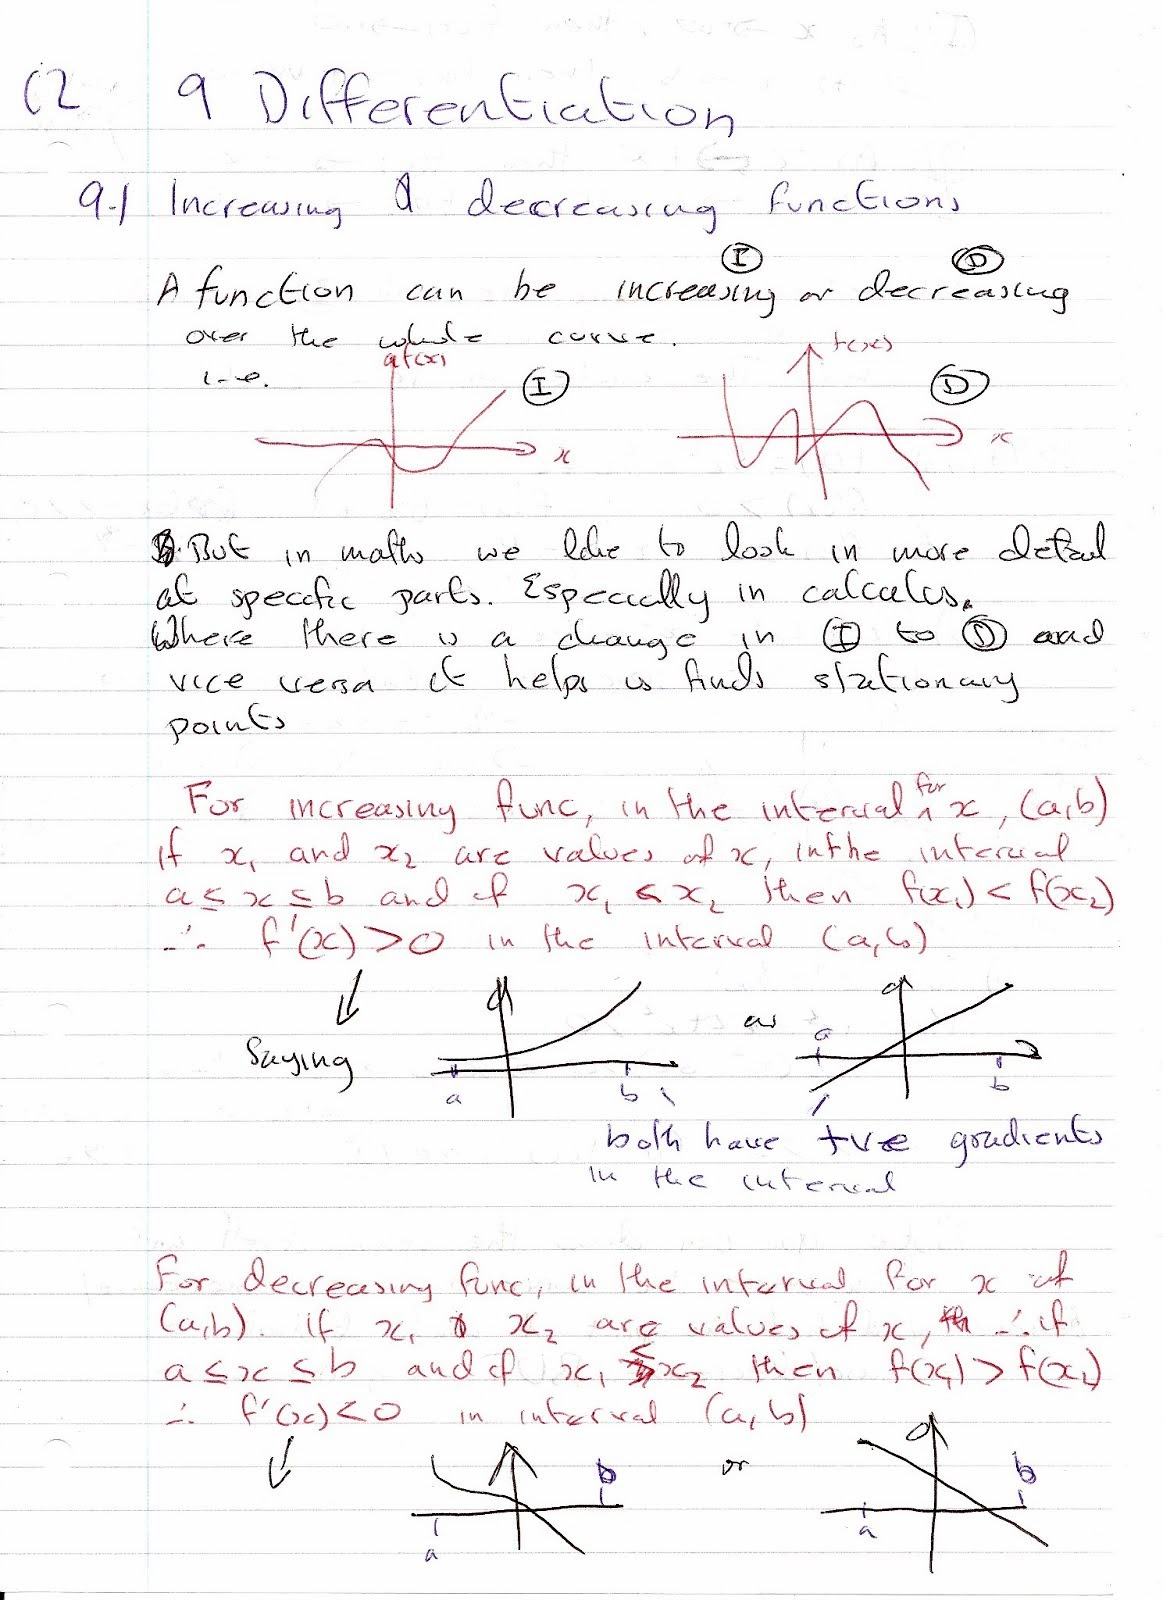 C2 9 Differentiation
9.1 Increasing & decreasing functions
I D
A function can be increasing or decreasing
over the whole curve.
i.e.
f(x) I x
f(x) D x
But in maths we like to look in more detail
at specific parts. Especially in calculus.
Where there is a change in I to D and
vice versa it helps us finds stationary
points
For increasing func, in the interval for x, (a,b)
if x₁ and x₂ are values of x, in the interval
a ≤ x ≤ b and if x₁ < x₂ then f(x₁) < f(x₂)
∴ f'(x) > 0 in the interval (a,b)
Saying
a b
as
a b
both have +ve gradients
in the interval
For decreasing func, in the interval for x at
(a,b). if x₁ & x₂ are values of x, ∴ if
a ≤ x ≤ b and if x₁ ≤ x₂ then f(x₁) > f(x₂)
∴ f'(x) < 0 in interval (a,b)
a b
or
a b